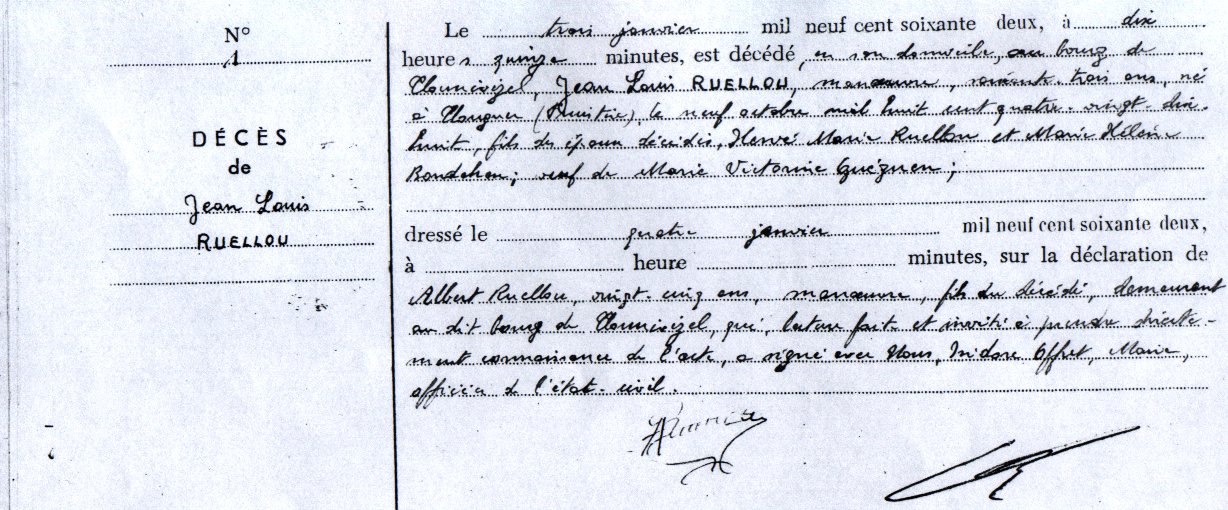 N°
1
DÉCÈS
de
Jean Louis
RUELLOU
Le trois janvier mil neuf cent soixante deux, à dix
heures quinze minutes, est décédé, en son domicile, au bourg de
Plounévézel, Jean Louis RUELLOU, manœuvre, soixante-trois ans, né
à Plouguer (Finistère), le neuf octobre mil huit cent quatre-vingt-dix
huit, fils des époux décédés, Hervé Marie Ruellou et Marie Hélène
veuf de Marie Victorine Guéguen;
dressé le quatre janvier mil neuf cent soixante deux,
à heure minutes, sur la déclaration de
Albert Ruellou, vingt-cinq ans, manœuvre, fils du décédé, demeurant
au dit bourg de Plounévézel, qui, lecture faite et invité à prendre directe-
ment connaissance de l'acte, a signé avec Nous, Isidore Offret, Maire,
officier de l'état-civil.